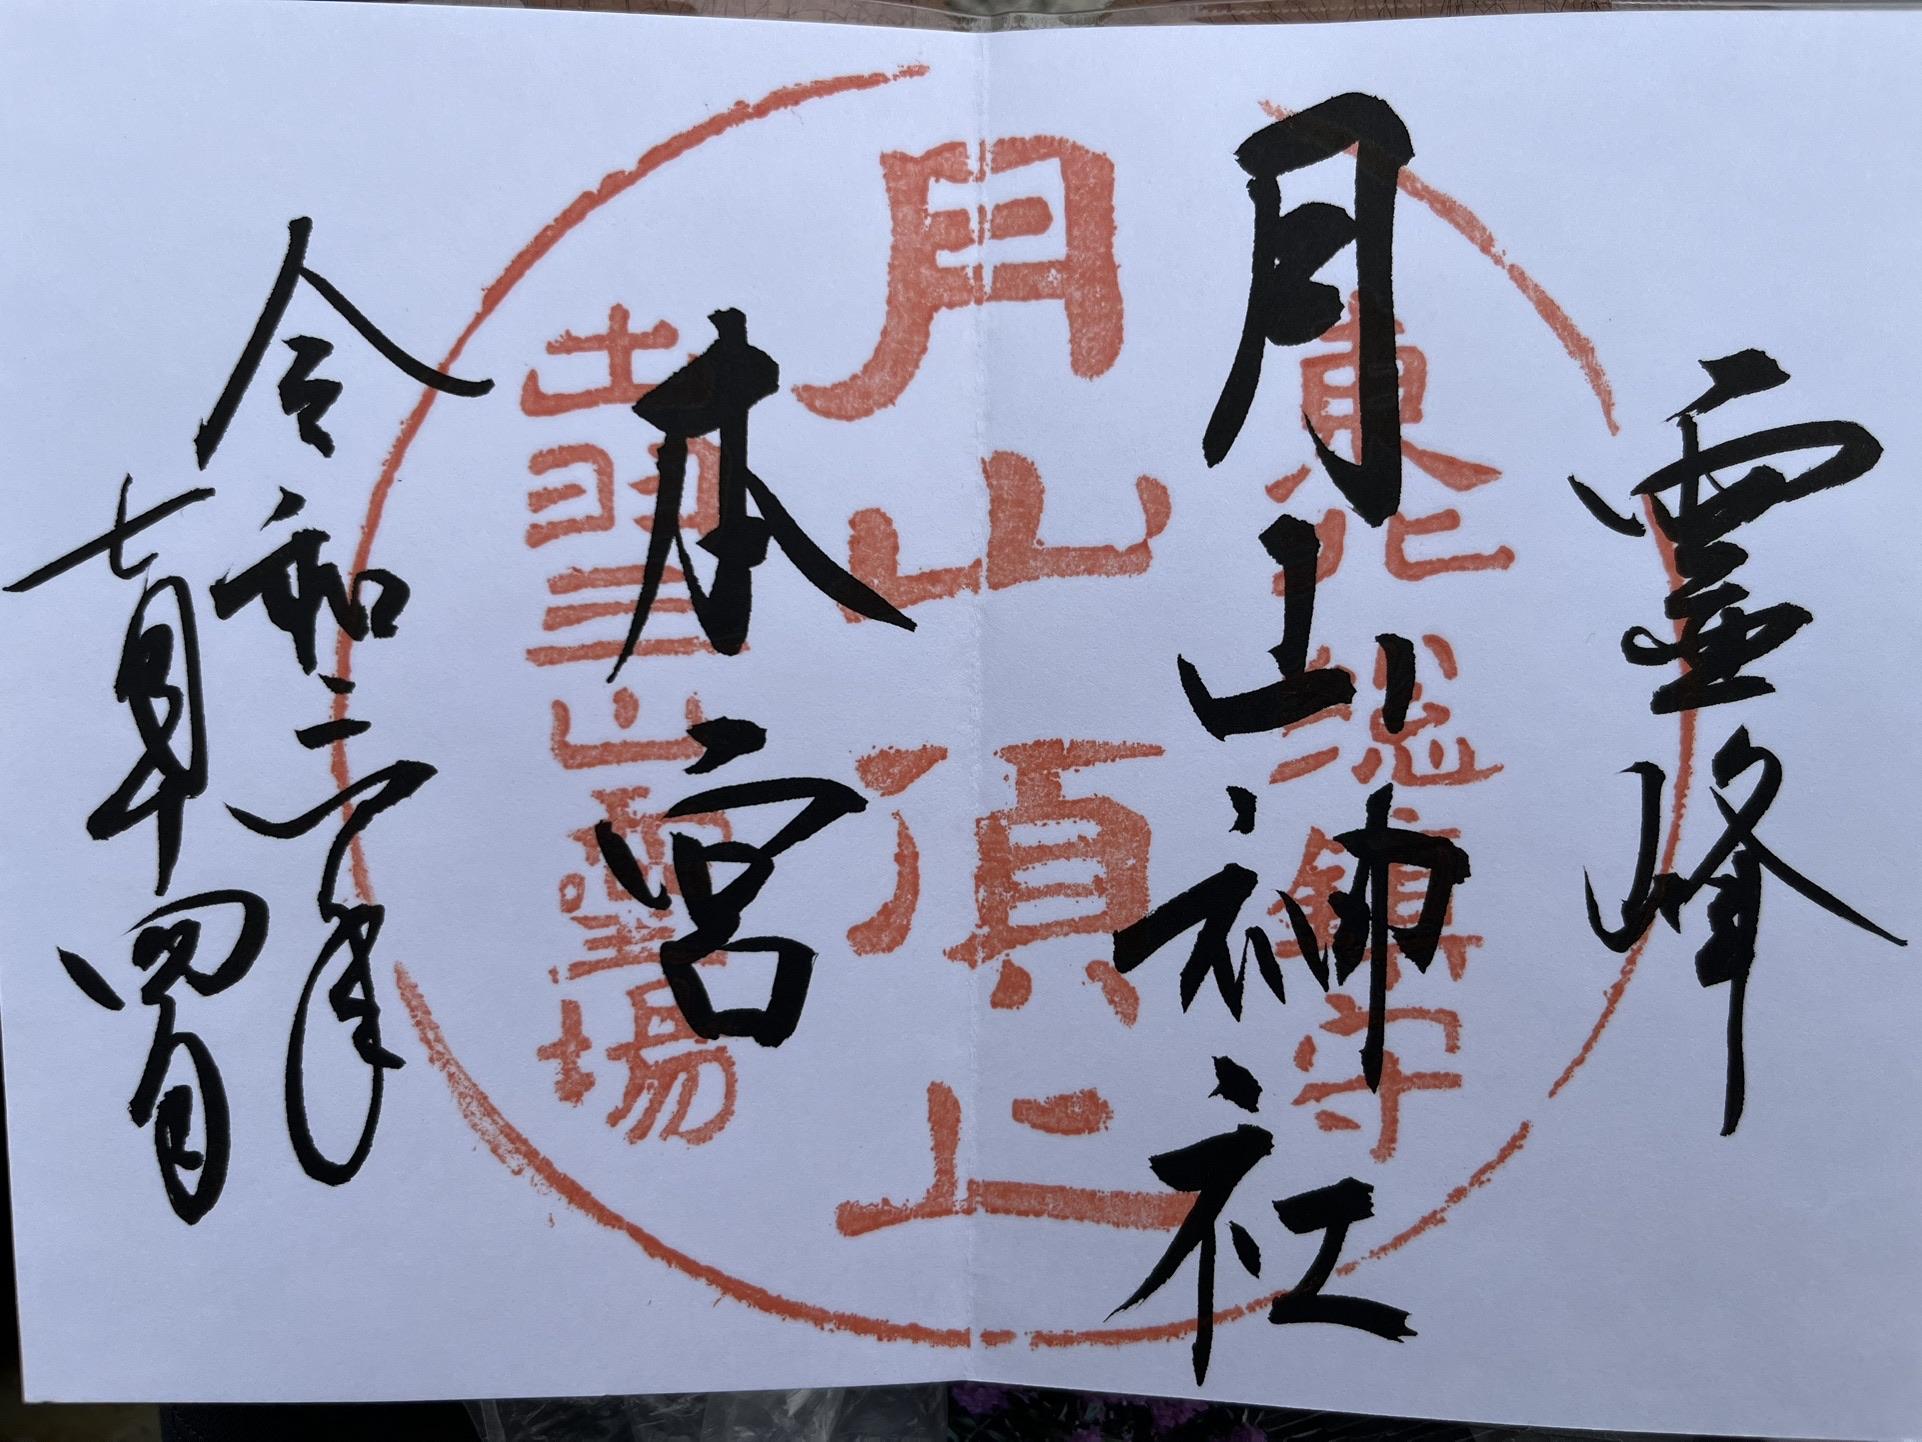 靈峰
東北総鎮守
月山神社
月山頂上
本宮
出羽三山靈場
令和三年
七月十四日